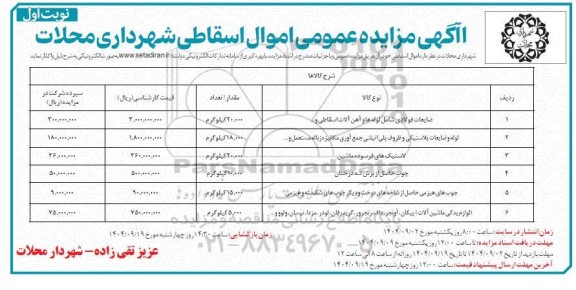 نوبت اول
آگهی مزایده عمومی اموال اسقاطی شهرداری محلات
شهرداری محلات در نظر دارد اموال اسقاطی خود را از طریق مزایده عمومی با جزئیات مندرج در اسناد مزایده با بهره گیری از سامانه تدارکات الکترونیکی دولت www.setadiran.ir به صورت الکترونیکی به شرح ذیل واگذار نماید
شرح کالاها
ردیف نوع کالا مقدار / تعداد قیمت کارشناسی (ریال) سپرده شرکت در مزایده (ریال)
۱ ضایعات فولادی شامل لوله ها و آهن آلات اسقاطی و... ۲۰،۰۰۰ کیلوگرم ۳,۰۰۰,۰۰۰,۰۰۰ ۳۰۰,۰۰۰,۰۰۰
۲ لوله و ضایعات پلاستیکی و ظروف پلی اتیلنی جمع آوری مکانیزه زباله مستعمل و... ۱۸،۰۰۰ کیلوگرم ۱,۸۰۰,۰۰۰,۰۰۰ ۱۸۰,۰۰۰,۰۰۰
۳ لاستیک های فرسوده ماشین ۲۰،۰۰۰ کیلوگرم ۳۶۰,۰۰۰,۰۰۰ ۳۶,۰۰۰,۰۰۰
۴ چوب حاصل از برش تنه درختان ۱۰،۰۰۰ کیلوگرم ۵۰۰,۰۰۰,۰۰۰ ۵۰,۰۰۰,۰۰۰
۵ چوب های هیزمی حاصل از شاخه های درخت و دیگر چوب های شکسته و هیزمی ۱۵،۰۰۰ کیلوگرم ۹۰,۰۰۰,۰۰۰ ۹,۰۰۰,۰۰۰
۶ لوازم یدکی ماشین آلات (پیکان، گریدر، فان، لودر، مزدا، نیسان، ولوو و... ۵،۰۰۰ کیلوگرم ۷۵۰,۰۰۰,۰۰۰ ۷۵,۰۰۰,۰۰۰
زمان انتشار در سایت: ساعت ۸:۰۰ روز یکشنبه مورخ ۱۴۰۴/۰۹/۰۲
مهلت دریافت اسناد مزایده: تا ساعت ۱۲:۰۰ یکشنبه مورخ ۱۴۰۴/۰۹/۰۹
مهلت بازدید از تاریخ ۱۴۰۴/۰۹/۰۲ تا تاریخ ۱۴۰۴/۰۹/۱۹ روزانه از ساعت ۸ الی ساعت ۱۲
آخرین مهلت ارسال پیشنهاد قیمت: ساعت ۱۲:۰۰ روز چهارشنبه مورخ ۱۴۰۴/۰۹/۱۹
زمان بازگشایی: ساعت ۱۴:۳۰ روز چهارشنبه مورخ ۱۴۰۴/۰۹/۱۹
عزیز تقی زاده - شهردار محلات
ParsNamadData
پایگاه اطلاع رسانی مناقصه و مزایده
۰۲۱-۸۸۳۴۹۶۷۰